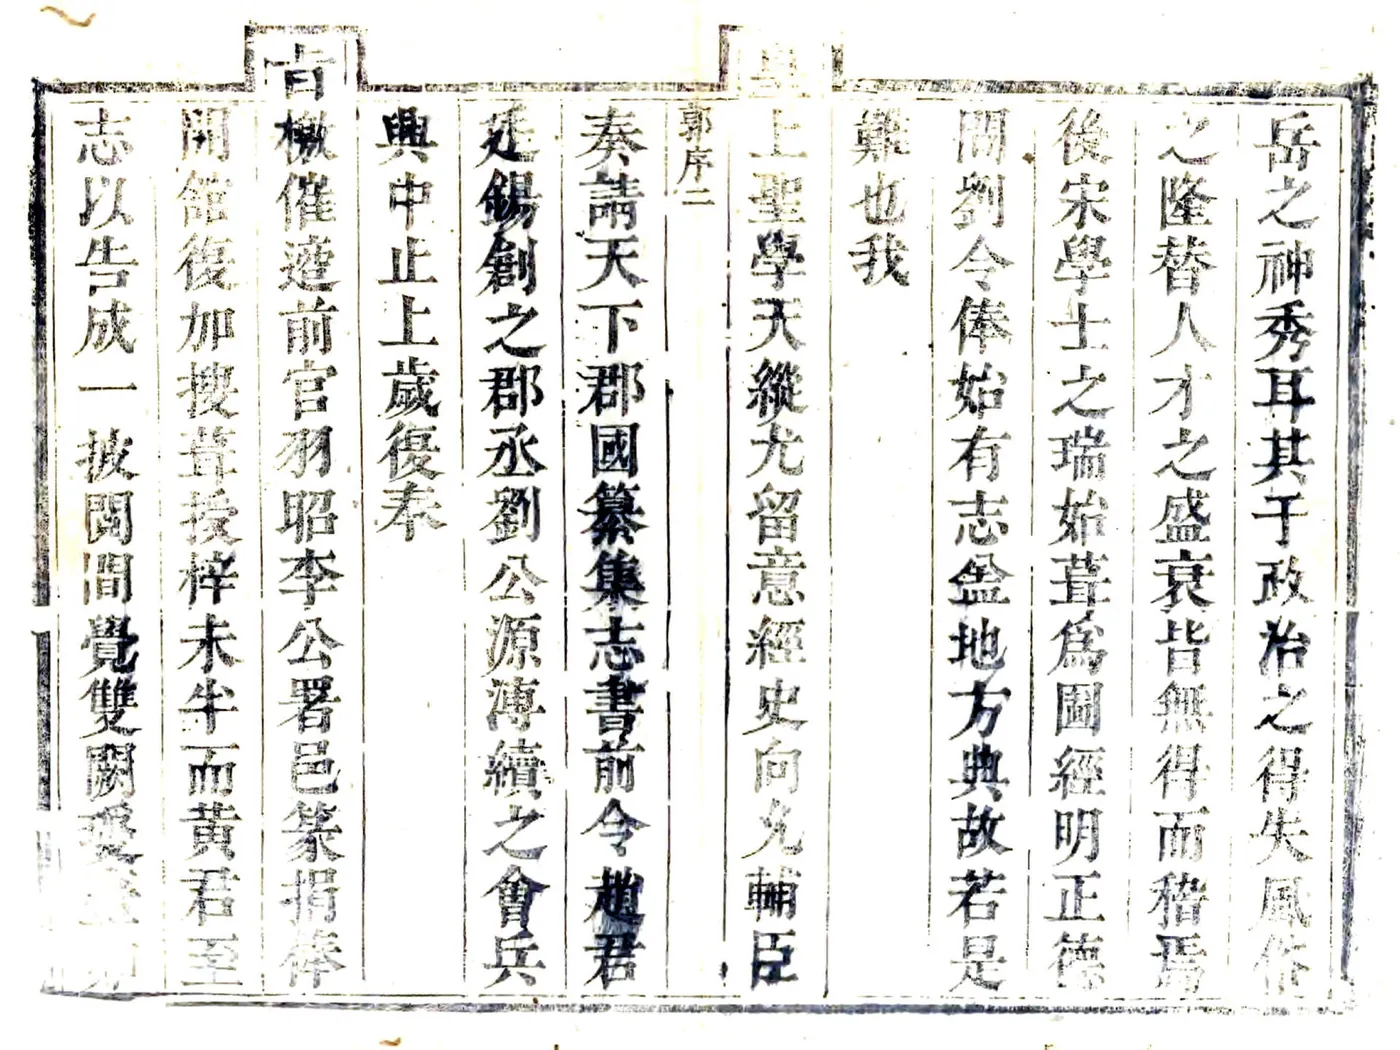 岳之神秀耳其于政治之得失風俗
之隆替人才之盛衰皆無得而稽焉
後宋學士之瑞始葺爲圖經明正德
間劉令俸始有志盖地方典故若是
難也我
皇上聖學天縱尤留意經史向允輔臣
郭序二
奏請天下郡國纂集志書前令趙君
廷錫創之郡丞劉公源溥續之會兵
興中止上歲復奉
旨檄催遝前官羽昭李公署邑篆捐俸
開舘復加搜葺授梓未半而黄君至
志以告成一披閱間覺雙闕